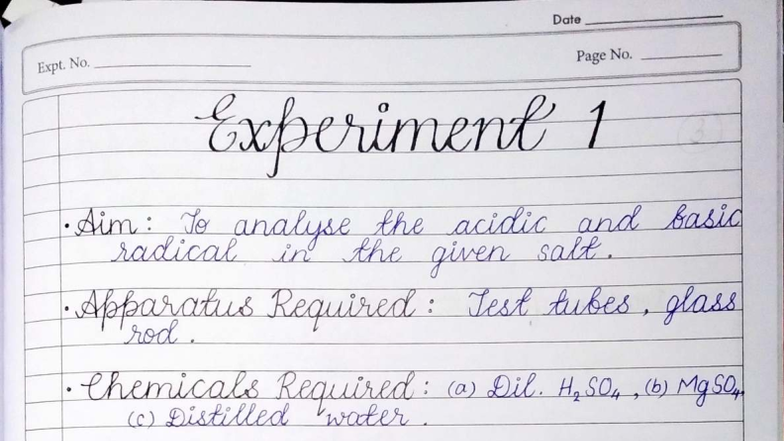 Date
Expt. No.
Page No.
Experiment 1
• Aim : To analyse the acidic and basic
radical in the given salt.
• Apparatus Required : Test tubes, glass
rod.
• Chemicals Required : (a) Dil. H₂SO₄, (b) MgSO₄,
(c) Distilled water.